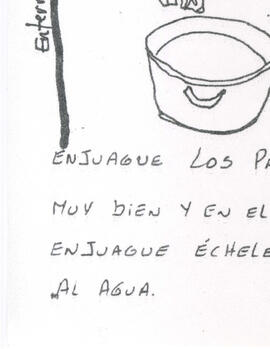 Enterr
ENJUAGUE LOS PA
MUY BIEN Y EN EL
ENJUAGUE ÉCHELE
AL AGUA.